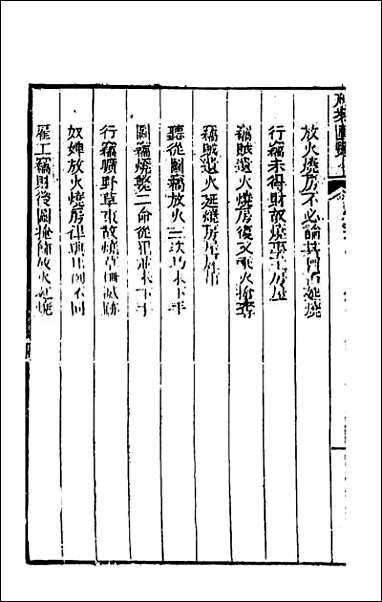 放火燒房不必論其門首延燒
行竊未得財故燒事主房屋
竊賊遺火燒房復又乘火搶奪
竊賊遺火延燒房屋
聽從圖竊放火三次均未下手
圖竊燒斃二命從犯並未下手
行竊曠野草束故燒草
奴婢放火燒房律典例不同
雇工竊財後圖掩飾放火延燒